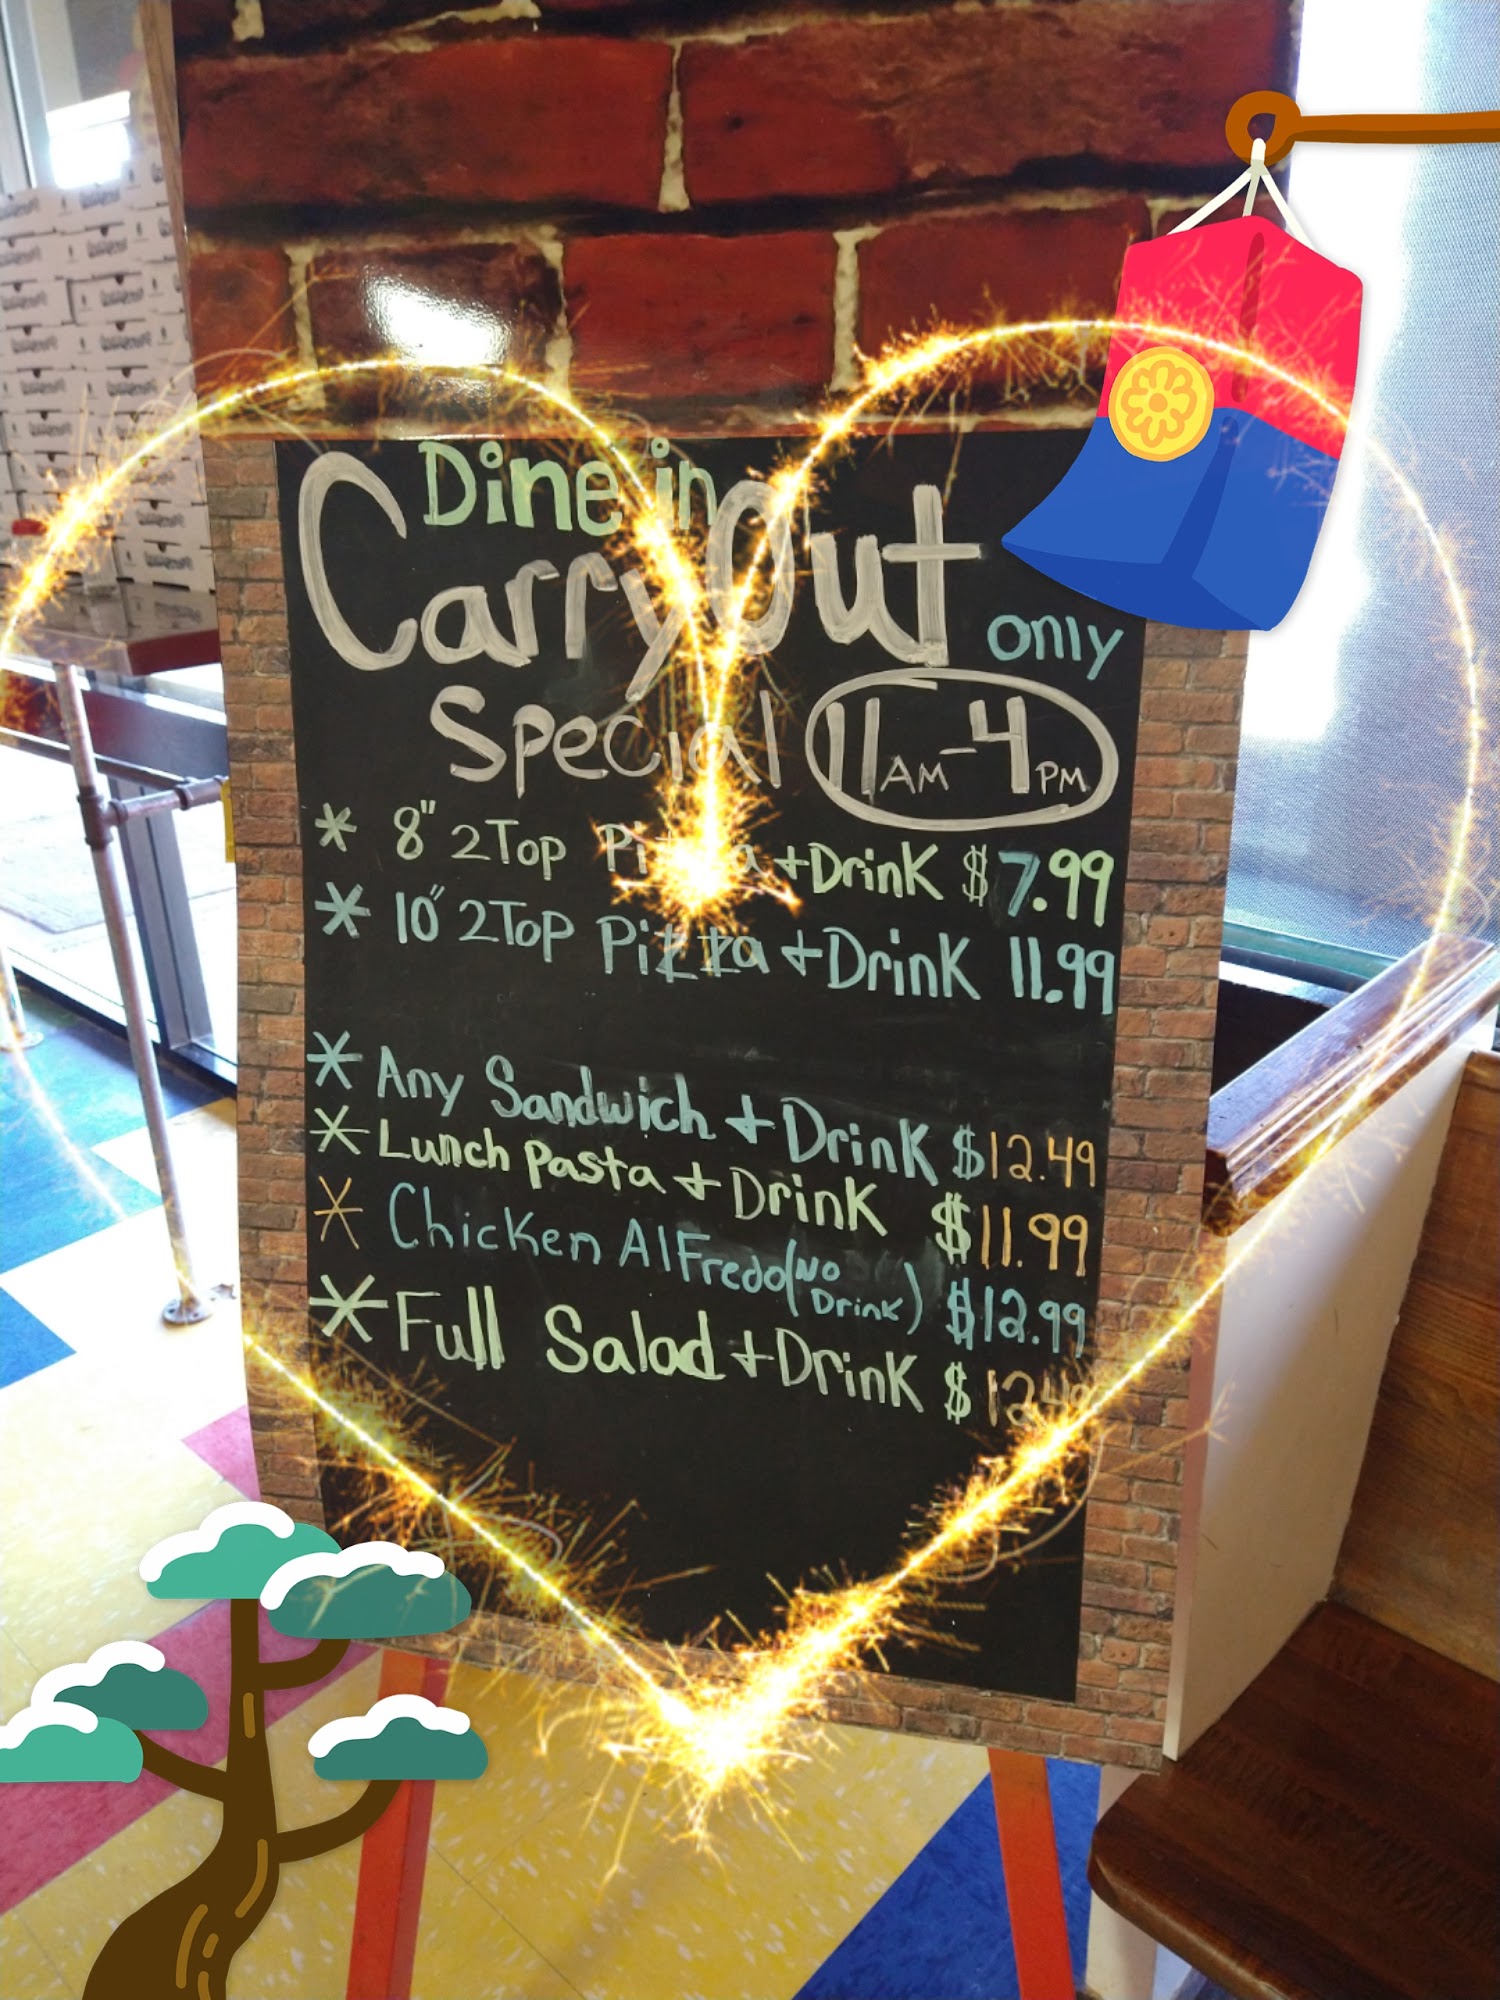 Dine in
Carry Out only
Special 11 AM - 4 PM
* 8" 2 Top Pizza + Drink $7.99
* 10" 2 Top Pizza + Drink 11.99
* Any Sandwich + Drink $12.49
* Lunch Pasta + Drink $11.99
* Chicken Alfredo (No Drink) $12.99
* Full Salad + Drink $12.49